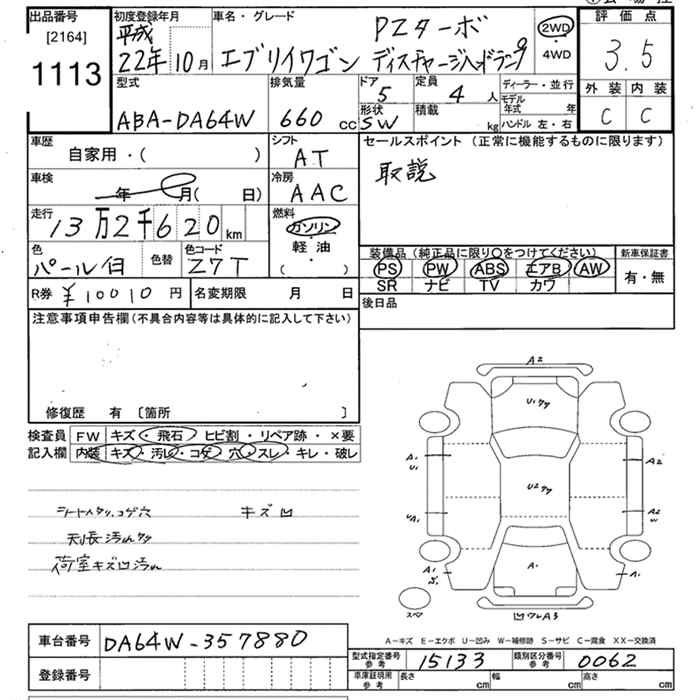 出品番号
[2164]
1113
初度登録年月
平成
22年10月
車名・グレード
PZターボ
エブリイワゴン ディスチャージヘッドランプ
2WD
4WD
評価点
3.5
外装 内装
C C
型式
ABA-DA64W
排気量
660 cc
ドア
5
定員
4 人
形状
SW
積載
kg
ディーラー・並行
モデル年式 年
ハンドル 左・右
車歴
自家用・( )
シフト
AT
セールスポイント (正常に機能するものに限ります)
取説
車検
年 月( 日)
冷房
AAC
走行
13万2千620km
燃料
ガソリン
軽油
( ・ )
色
パール白
色替
色コード
Z7T
装備品(純正品に限り○をつけてください)
PS PW ABS エアB AW
SR ナビ TV カワ
新車保証書
有・無
R券 ¥10010円
名変期限 月 日
後日品
注意事項申告欄(不具合内容等は具体的に記入して下さい)
修復歴 有 [箇所 ]
検査員
記入欄
FW キズ・飛石 ヒビ割・リペア跡・×要
内装 キズ・汚レ・コゲ・穴・スレ・キレ・破レ
シートスタリ、コゲ穴 キズ凹
天張汚れ
荷室キズ凹汚れ
A2
A1
A2
U1
U2
A2
W
A1
A1
スペア
A-キズ E-エクボ U-凹み W-補修跡 S-サビ C-腐食 XX-交換済
車台番号 DA64W-357880
登録番号
型式指定番号
参考
15133
類別区分番号
参考
0062
車庫証明用
参考
長さ cm
幅 cm
高さ cm